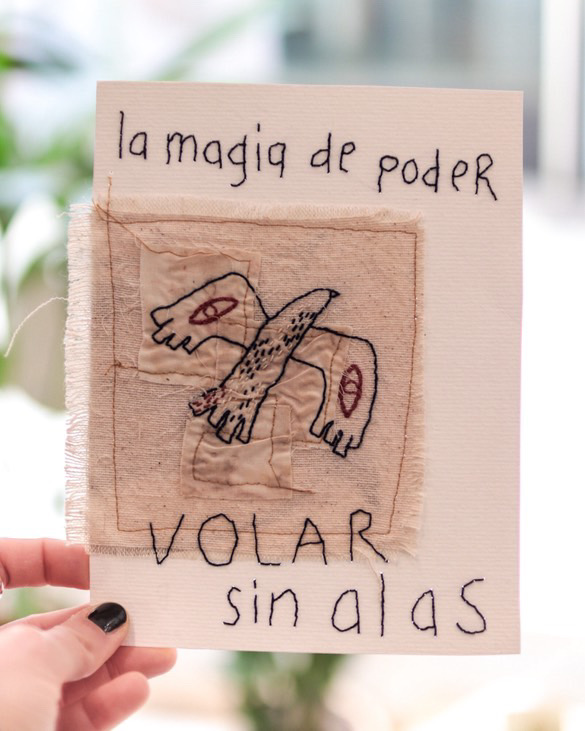 la magia de podeR
VOLAR
sin alas